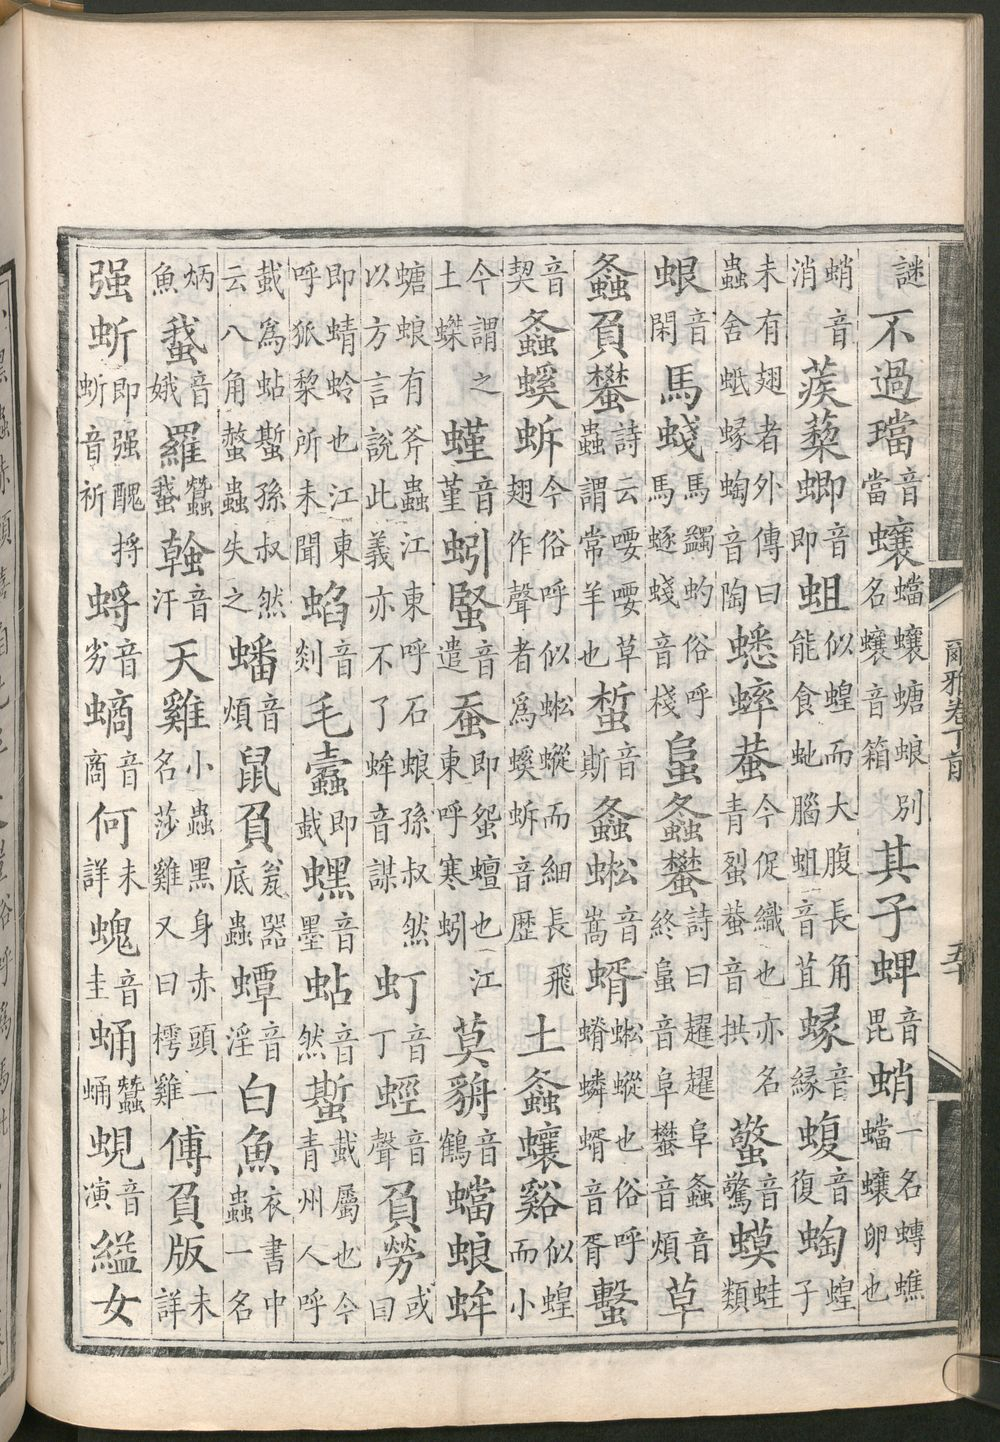 謎不過蟷音當蠰蟷蠰螗蜋別名蠰音箱其子蜱音毘蛸一名䗚蟭蟷蠰卵也
蛸音消蒺蔾蝍音即蛆似蝗而大腹長角能食虵腦蛆音苴蝝音緣蝮音復蜪蝗子
未有翅者外傳曰蟲舍蚳蝝蜪音陶蟋蟀蛬今促織也亦名青䖽蛬音拱蟼音驚蟆蛙類
蛝音閑馬䗃馬蠲蚐俗呼馬蝬䗃音棧蛗螽蠜詩曰趯趯阜螽音終蛗音阜蠜音煩草
螽負蠜詩云喓喓草蟲謂常羊也蜤音斯螽蜙音嵩蝑蜙䗥也俗呼蝑音胥蟿
音契螽螇蚸今俗呼似蜙䗥而細長飛翅作聲者為螇蚸音歷土螽蠰谿似蝗而小
今謂之土螼音菫蚓蜸音遣蚕即䖤蟺也江東呼寒蚓莫貈音鶴蟷蜋蛑
螗蜋有斧蟲江東呼石蜋孫叔然以方言說此義亦不了蛑音謀虰音丁蛵音聲負勞或曰
即蜻蛉也江東呼狐棃所未聞蜭音剡毛蠹即蛓蟔音墨蛅音然蟴蛓屬也今青州人呼
蛓為蛅蟴孫叔然云八角螫蟲失之蟠音煩鼠負瓮器底蟲蟫音淫白魚衣書中蟲一名
炳魚䖸音娥羅蠶䖸螒音汗天雞小蟲黑身赤頭一名莎雞又曰樗雞傅負版未詳
强蚚即强醜捋蚚音祈蛶音劣螪音商何未詳螝音圭蛹蠶蛹蜆音演縊女
爾雅卷下前
五十